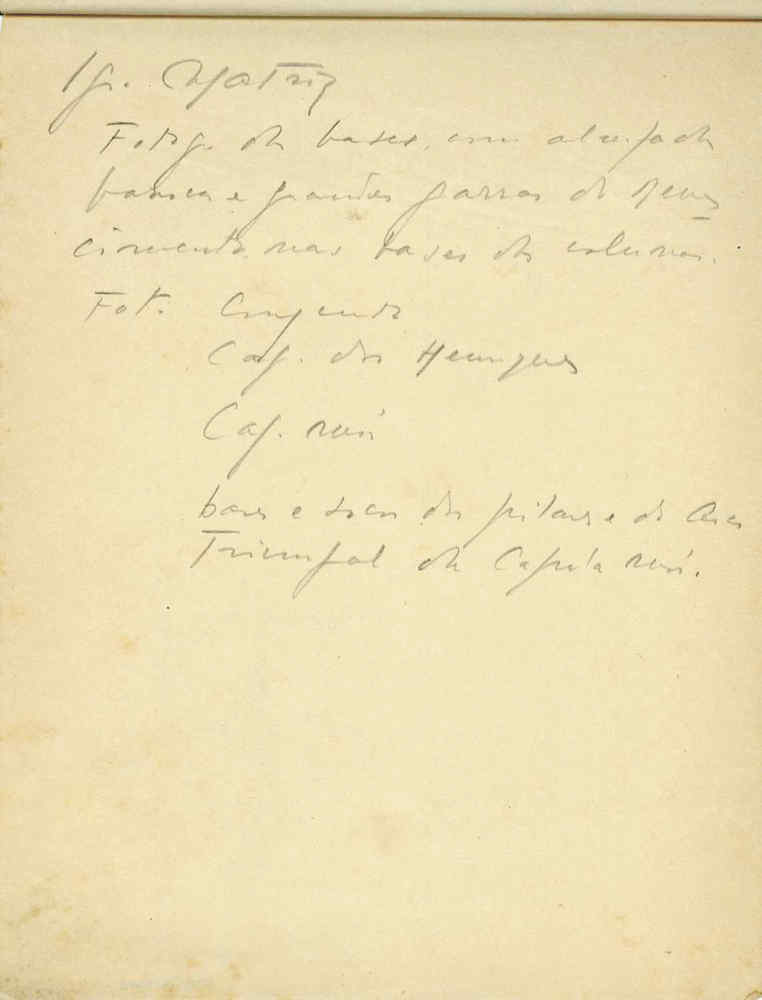 Ig. Matriz
Fotog. da bases, com almofada
baixa e grandes garras de Renas
cimento nas bases das colunas.
Fot. Conjunto
Cap. dos Henriques
Cap. mór
bases e socos dos pilares e do Arco
Triumfal da Capela mór.